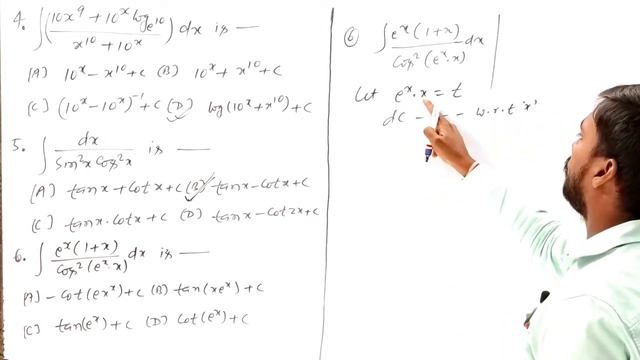 4. ∫(10x⁹ + 10ˣ logₑ10 / x¹⁰ + 10ˣ) dx is —
(A) 10ˣ - x¹⁰ + c (B) 10ˣ + x¹⁰ + c
(C) (10ˣ - 10ˣ)⁻¹ + c (D) log(10ˣ + x¹⁰) + c
5. ∫ dx / sin²x cos²x is —
(A) tanx + cotx + c (B) tanx - cotx + c
(C) tanx·cotx + c (D) tanx - cot2x + c
6. ∫ eˣ(1+x) / cos²(eˣ·x) dx is —
(A) - cot(exˣ) + c (B) tan(xeˣ) + c
(C) tan(eˣ) + c (D) cot(eˣ) + c
⑥ ∫ eˣ(1+x) / cos²(eˣ·x) dx
Let eˣ·x = t
w.r.t 'x'